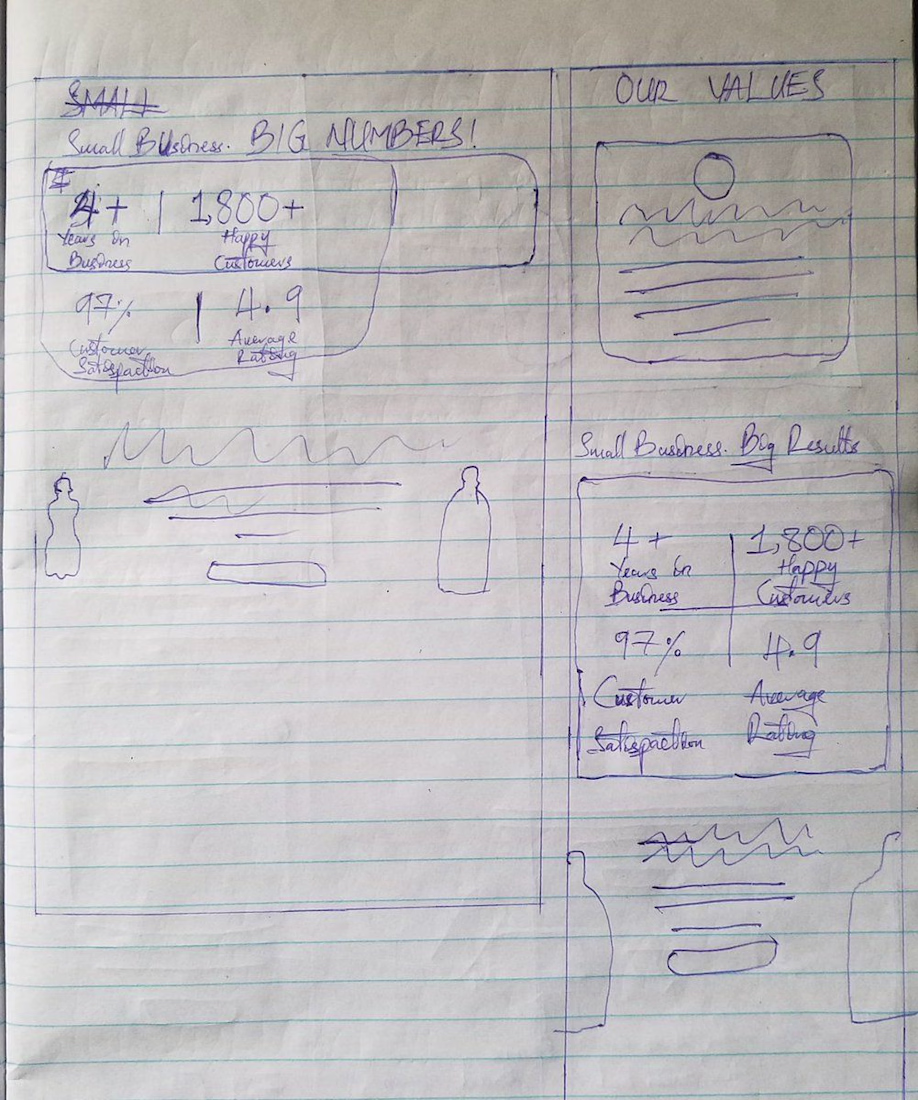 SMALL
Small Business. BIG NUMBERS!
4+ | 1,800+
Years in Business
Happy Customers
97% | 4.9
Customer Satisfaction
Average Rating
OUR VALUES
Small Business. Big Results
4+ | 1,800+
Years in Business
Happy Customers
97% | 4.9
Customer Satisfaction
Average Rating